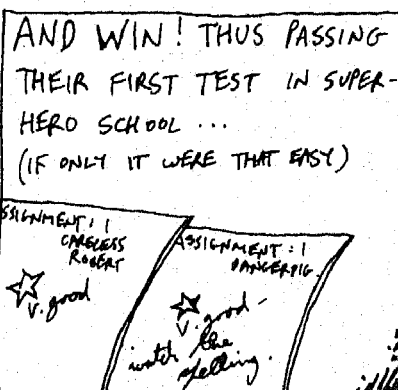 AND WIN! THUS PASSING
THEIR FIRST TEST IN SUPER-
HERO SCHOOL ...
(IF ONLY IT WERE THAT EASY)
SSIGNMENT: 1
CARELESS
ROBERT
V. good
ASSIGNMENT: 1
DANGERPIG
V. good -
watch the
spelling.